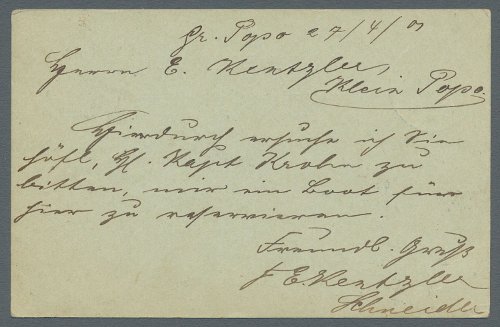 Gr. Popo 27/4/01
Herrn E. Kentzler,
Klein Popo.
Hierdurch ersuche ich Sie
höfl., H. Kapt Krohn zu
bitten, mir ein Boot für
hier zu reservieren.
Freundl. Gruß
E. Kentzler
Schneider